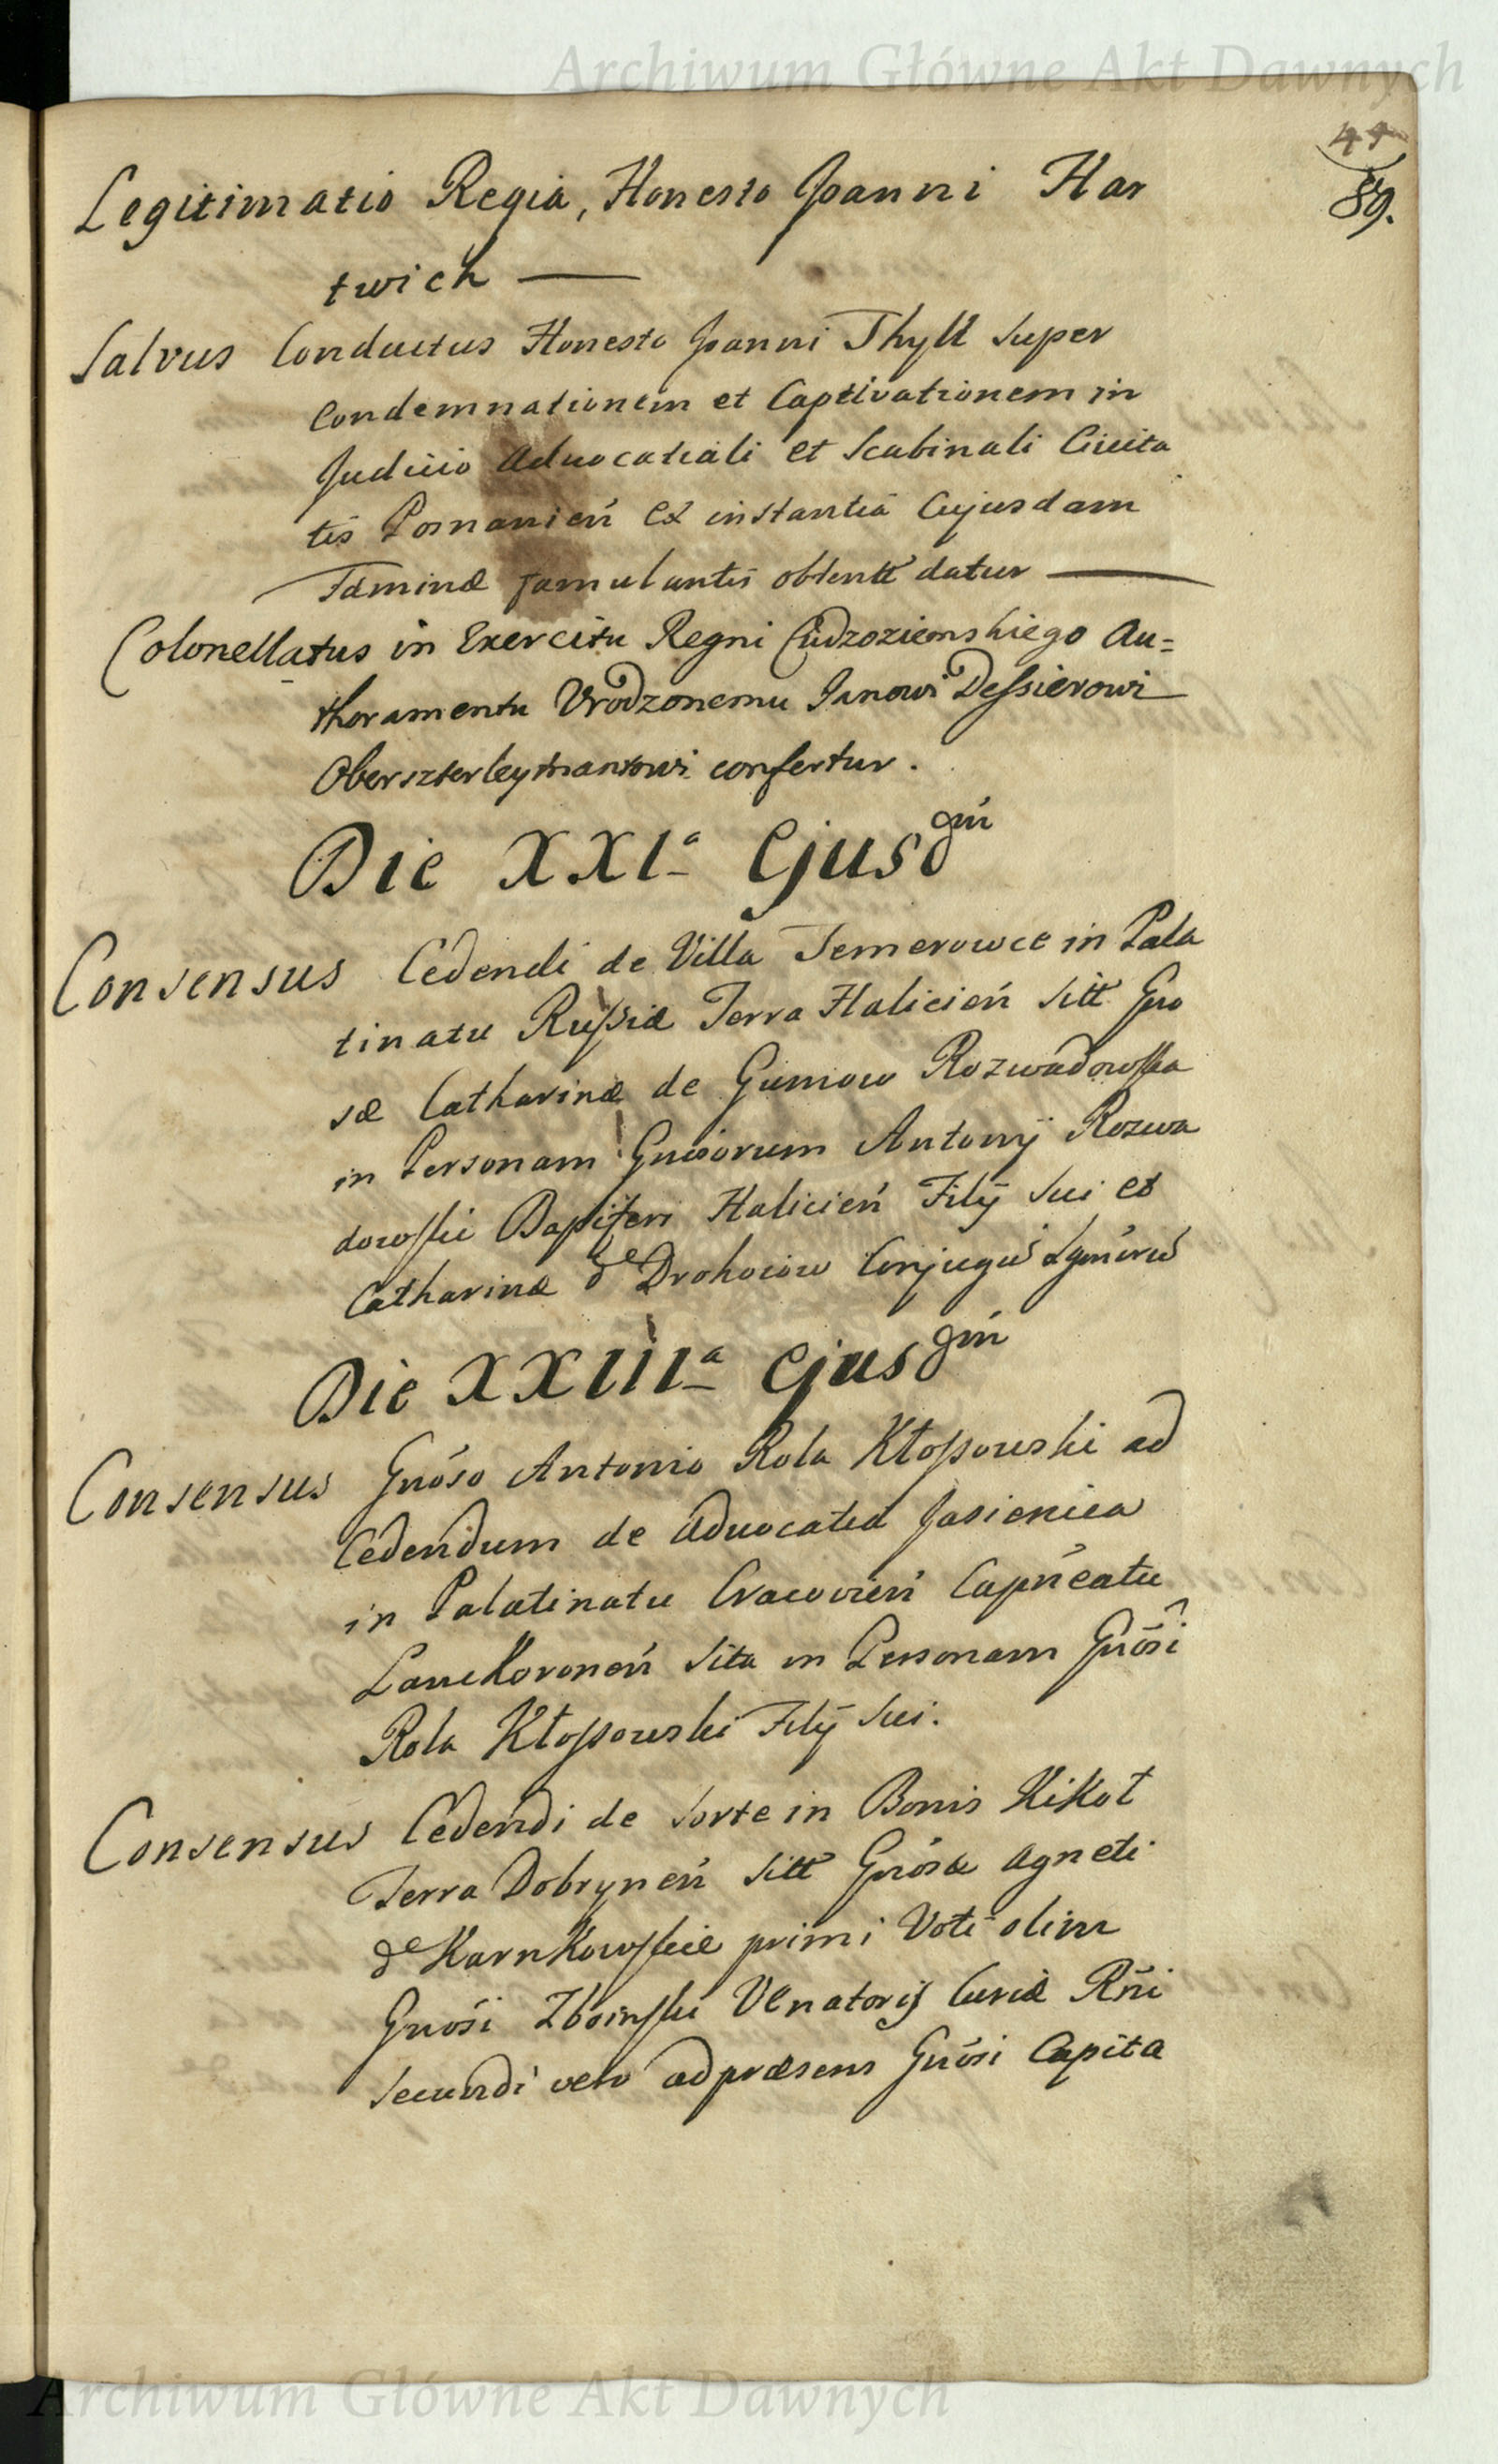 Archiwum Główne Akt Dawnych
89.
Legitimatio Regia, Honesto Joanni Har
twich —
Salvus Conductus Honesto Joanni Thyll super
Condemnationem et Captivationem in
Judicio Advocatiali et Scabinali Civita
tis Posnanień ex instantiâ Cujusdam
Fæminæ famulantis obtentt datur —
Colonellatus in Exercitu Regni Cudzoziemskiego Au=
thoramentu Vrodzonemu Janowi Dessierowi
Oberszterleytnantowi confertur.
Die XXIª Ejusdm̄
Consensus Cedendi de Villa Temerowce in Pala
tinatu Russiæ Terra Halicień sitt Gno
sæ Catharinæ de Gumow Rozwadowska
in Personam Gnosorum Antonij Rozwa
dowski Dapiferi Halicień Filij sui et
Catharinæ de Drohoiow Conjugū Lgmörū
Die XXIIIª ejusdm̄
Consensus Gnóso Antonio Rola Kłossowski ad
Cedendum de Advocatia Jasienica
in Palatinatu Cracovień Capńeatu
Lanckoroneń sita in Personam Gnōsi
Rola Kłossowski Filij sui.
Consensus Cedendi de sorte in Bonis Kikoł
Terra Dobrzyneń sitt Gnósæ Agneti
de Karnkowskie primi Voti olim
Gnosi Zboinski Venatorij Curiæ Rn̄i
secundi vero ad præsens Gnōsi Capita
Archiwum Główne Akt Dawnych